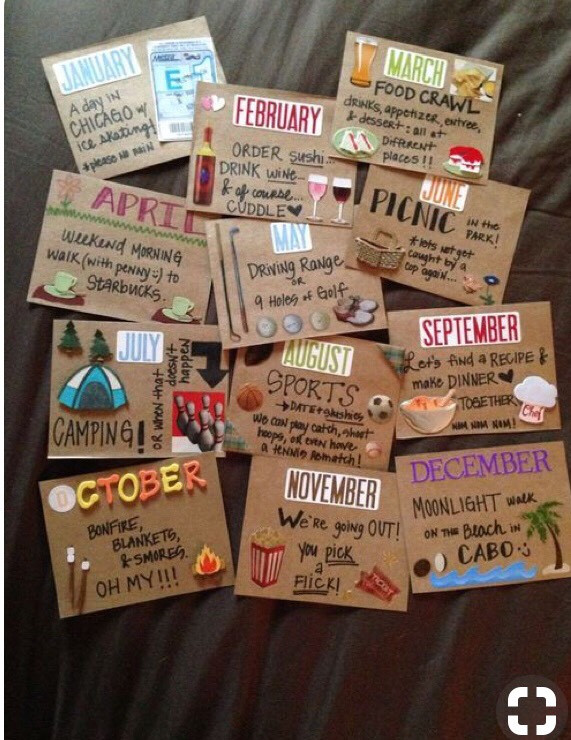 JANUARY
A day in
CHICAGO w/
ice skating!
*please no rain
E
FEBRUARY
ORDER sushi...
DRINK wine...
& of course...
CUDDLE♥
MARCH
FOOD CRAWL
drinks, appetizer, entree,
& dessert: all at
Different
places!!
APRIL
Weekend MORNING
walk (with penny :) to
STARBUCKS.
MAY
DRIVING RANGE
OR
9 Holes of Golf
JUNE
PICNIC IN THE
PARK!
*lets not get
caught by a
cop again...
JULY
CAMPING!
OR when that
doesn't
happen
AUGUST
SPORTS
→DATE + slushies
We can play catch, shoot
hoops, or even have
a tennis rematch!
SEPTEMBER
Let's find a RECIPE &
make DINNER ♥
TOGETHER
NOM NOM NOM!
Chef
OCTOBER
BONFIRE,
BLANKETS,
& SMORES.
OH MY!!!
NOVEMBER
We're going OUT!
you pick
a
FLICK!
TICKET
DECEMBER
MOONLIGHT walk
ON THE Beach in
CABO :)